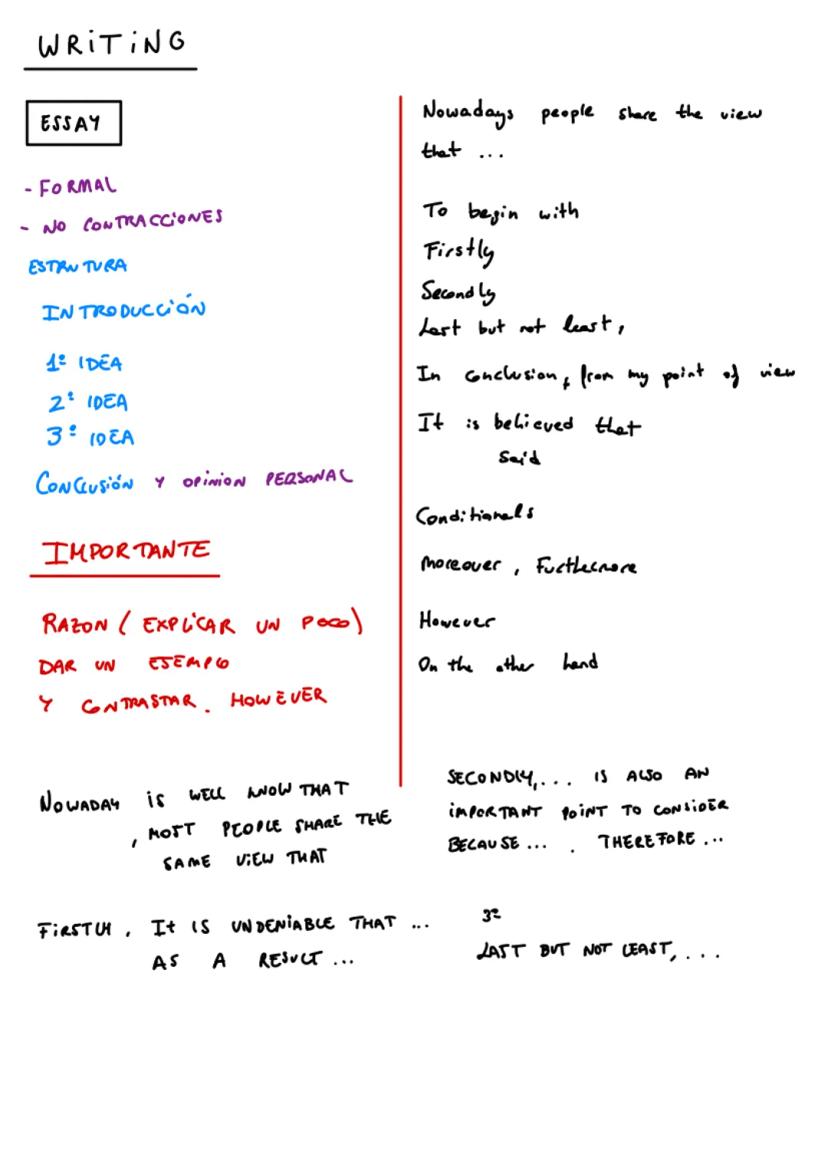 WRITING
ESSAY
- FORMAL
- NO CONTRACCIONES
ESTRUTURA
INTRODUCCIÓN
1º IDEA
2º IDEA
3º IDEA
CONCLUSIÓN Y OPINION PERSONAL
IMPORTANTE
RAZON ( EXPLICAR UN POCO)
DAR UN EJEMPLO
Y CONTRASTAR. HOWEVER
Nowadays people share the view
that ...
To begin with
Firstly
Secondly
Last but not least,
In conclusion, from my point of view
It is believed that
said
Conditionals
Moreover, Furthermore
However
On the other hand
NOWADAY is WELL KNOW THAT
, MOST PEOPLE SHARE THE
SAME VIEW THAT
FIRSTLY, It IS UNDENIABLE THAT ...
AS A RESULT ...
SECONDLY,... IS ALSO AN
IMPORTANT POINT TO CONSIDER
BECAUSE ... . THEREFORE ...
3º
LAST BUT NOT LEAST, ...